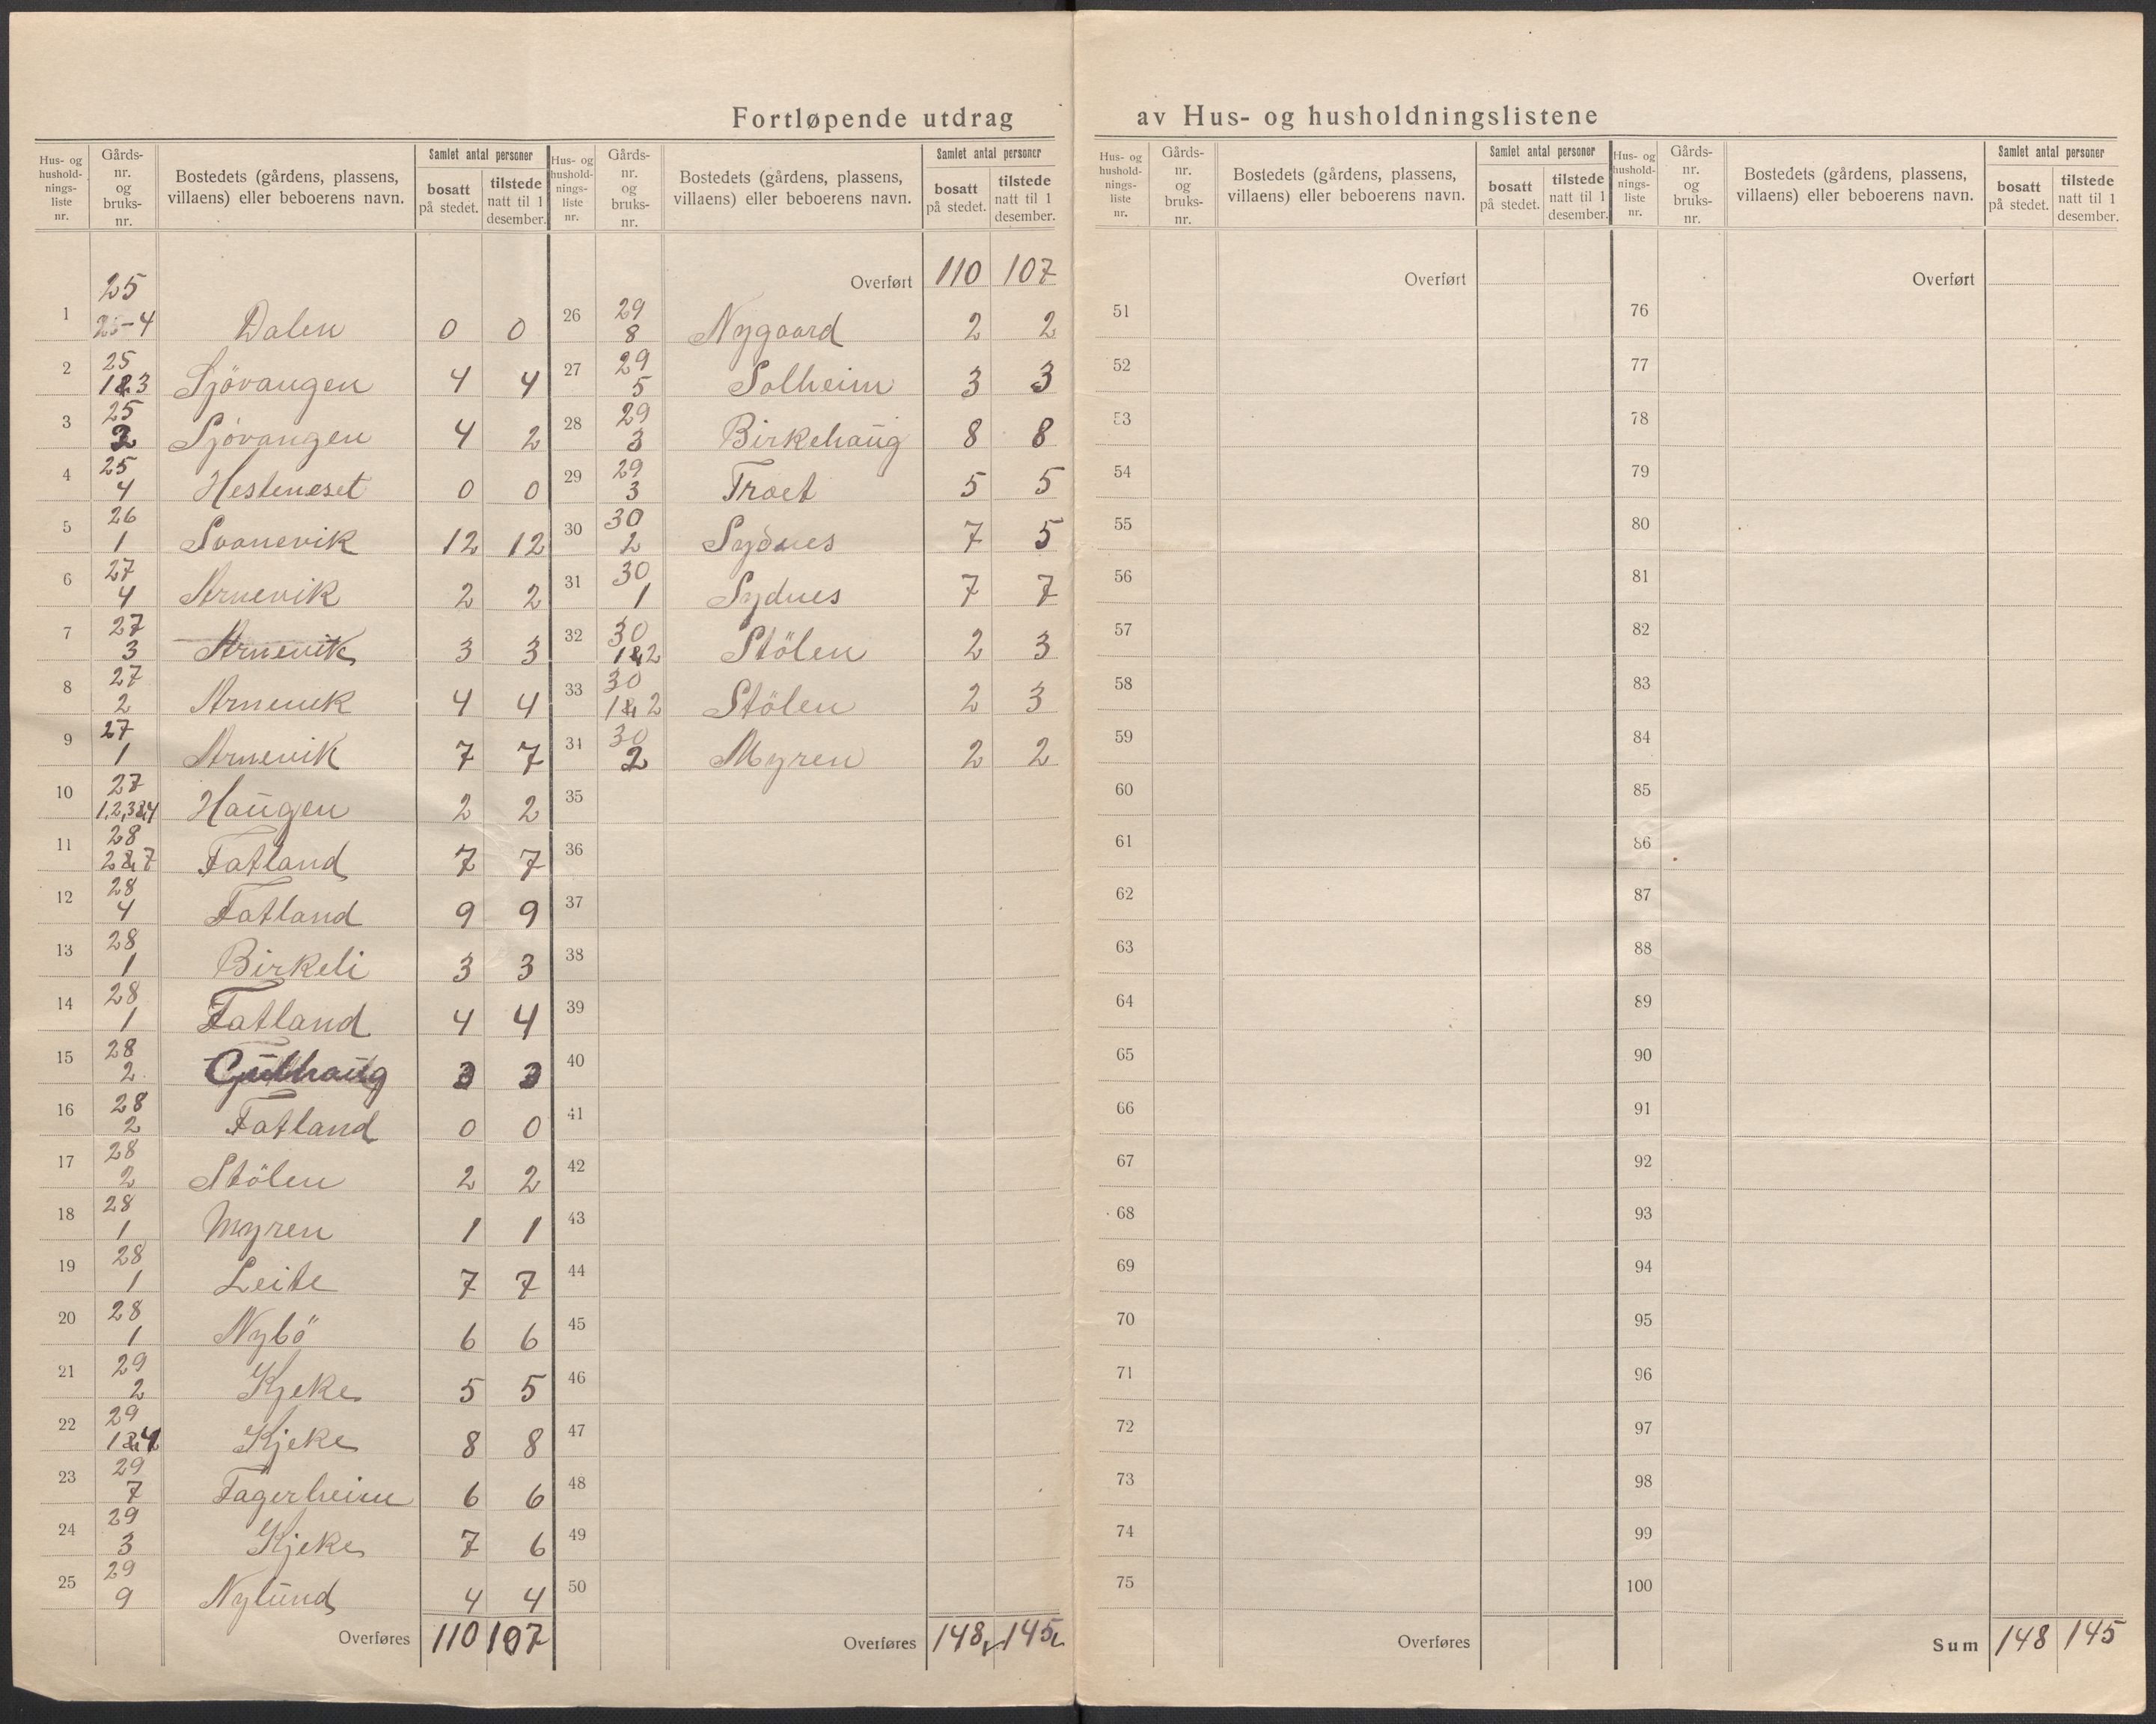 Fortløpende utdrag av Hus- og husholdningslistene
Hus- og hushold-nings-liste nr. Gårds-nr. og bruks-nr. Bostedets (gårdens, plassens, villaens) eller beboerens navn. Samlet antal personer bosatt på stedet. tilstede natt til 1 desember.
Hus- og hushold-nings-liste nr. Gårds-nr. og bruks-nr. Bostedets (gårdens, plassens, villaens) eller beboerens navn. Samlet antal personer bosatt på stedet. tilstede natt til 1 desember.
1 25 25-4 Dalen 0 0
2 25 1&3 Sjövangen 4 4
3 25 2 Sjövangen 4 2
4 25 4 Hesteneset 0 0
5 26 1 Svanevik 12 12
6 27 4 Arnevik 2 2
7 27 3 Arnevik 3 3
8 27 2 Arnevik 4 4
9 27 1 Arnevik 7 7
10 27 1,2,3&4 Haugen 2 2
11 28 2&7 Fatland 7 7
12 28 4 Fatland 9 9
13 28 1 Birkeli 3 3
14 28 1 Fatland 4 4
15 28 2 Gulhaug 3 3
16 28 2 Fatland 0 0
17 28 2 Stölen 2 2
18 28 1 Myren 1 1
19 28 1 Leite 7 7
20 28 1 Nybö 6 6
21 29 2 Kjeke 5 5
22 29 1&4 Kjeke 8 8
23 29 7 Fagerheim 6 6
24 29 3 Kjeke 7 6
25 29 9 Nylund 4 4
Overføres 110 107
Overført 110 107
26 29 8 Nygaard 2 2
27 29 5 Solheim 3 3
28 29 3 Birkehaug 8 8
29 29 3 Træet 5 5
30 30 2 Sydnes 7 5
31 30 1 Sydnes 7 7
32 30 1&2 Stölen 2 3
33 30 1&2 Stölen 2 3
34 30 2 Myren 2 2
35
36
37
38
39
40
41
42
43
44
45
46
47
48
49
50
Overføres 148 145
Hus- og hushold-nings-liste nr. Gårds-nr. og bruks-nr. Bostedets (gårdens, plassens, villaens) eller beboerens navn. Samlet antal personer bosatt på stedet. tilstede natt til 1 desember.
Overført
51
52
53
54
55
56
57
58
59
60
61
62
63
64
65
66
67
68
69
70
71
72
73
74
75
Overføres
Hus- og hushold-nings-liste nr. Gårds-nr. og bruks-nr. Bostedets (gårdens, plassens, villaens) eller beboerens navn. Samlet antal personer bosatt på stedet. tilstede natt til 1 desember.
Overført
76
77
78
79
80
81
82
83
84
85
86
87
88
89
90
91
92
93
94
95
96
97
98
99
100
Sum 148 145